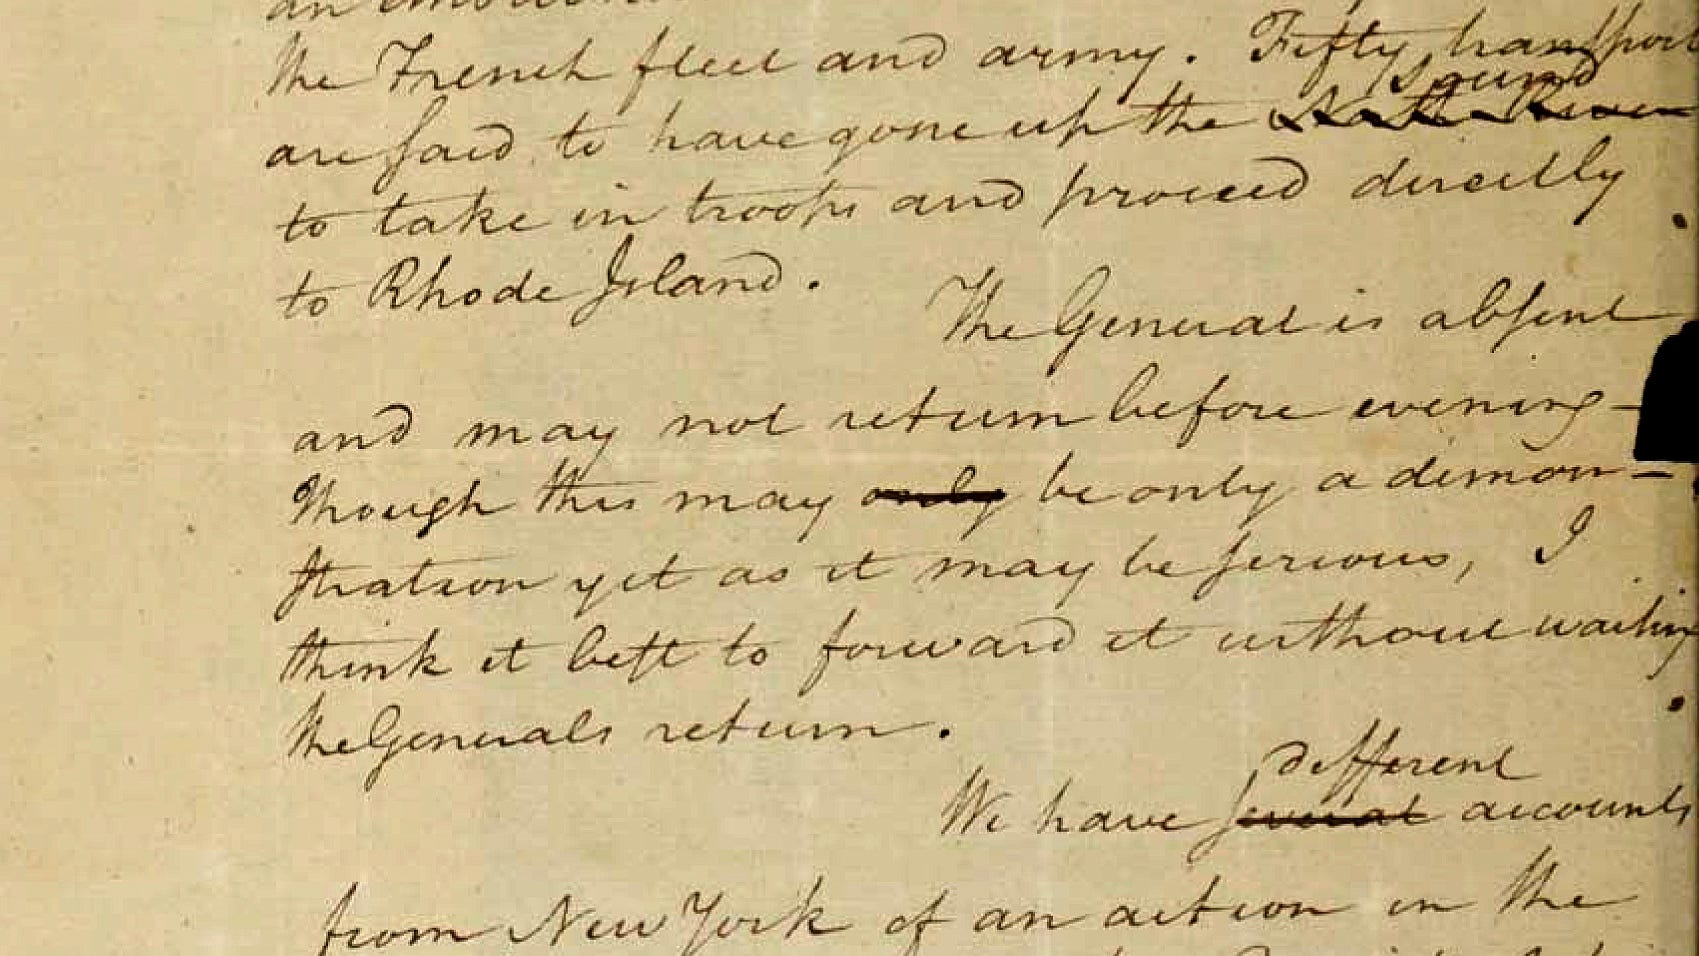 the French fleet and army. Fifty transport
Sound
are said to have gone up the North River
to take in troops and proceed directly
to Rhode Island.
The General is absent
and may not return before evening—
though this may only be only a demon-
stration yet as it may be serious, I
think it best to forward it without waiting
the Generals return.
different
We have several accounts
from New York of an action in the